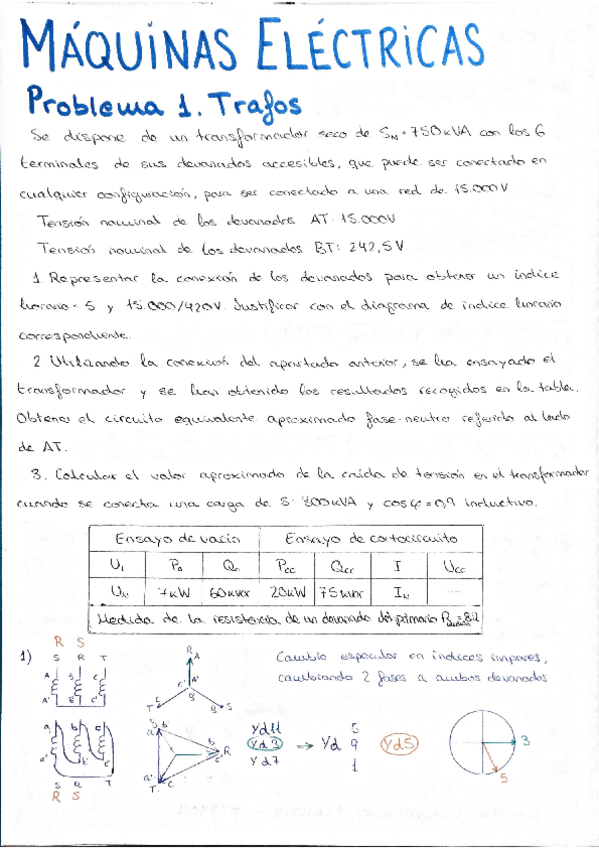 MÁQUINAS ELÉCTRICAS
Problema 1. Trafos
Se dispone de un transformador seco de SN=750kVA con los 6
terminales de sus devanados accesibles, que puede ser conectado en
cualquier configuración, para ser conectado a una red de 15.000V
Tensión nominal de los devanados AT: 15.000V
Tensión nominal de los devanados BT: 242,5V
1. Representar la conexión de los devanados para obtener un índice
horario = 5 y 15.000/420V. Justificar con el diagrama de índice horario
correspondiente.
2 Utilizando la conexión del apartado anterior, se ha ensayado el
transformador y se han obtenido los resultados recogidos en la tabla.
Obtener el circuito equivalente aproximado fase-neutro referido al lado
de AT.
3. Calcular el valor aproximado de la caída de tensión en el transformador
cuando se conecta una carga de S: 800kVA y cosφ=0,9 inductivo.
Ensayo de vacío Ensayo de cortocircuito
U1 P0 Q0 Pcc Qcc I Ucc
UN 7kW 60kvar 20kW 75kvar IN ....
Medida de la resistencia de un devanado del primario
R S
1) S R T
A B C
A' B' C'
R
A
T S
Cambio especular en índices impares,
cambiando 2 fases a ambos devanados
a b c
a' b' c'
S R T
R S
Yd11 5
Yd3 → Yd 9 Yd5
Yd7 1
3
5